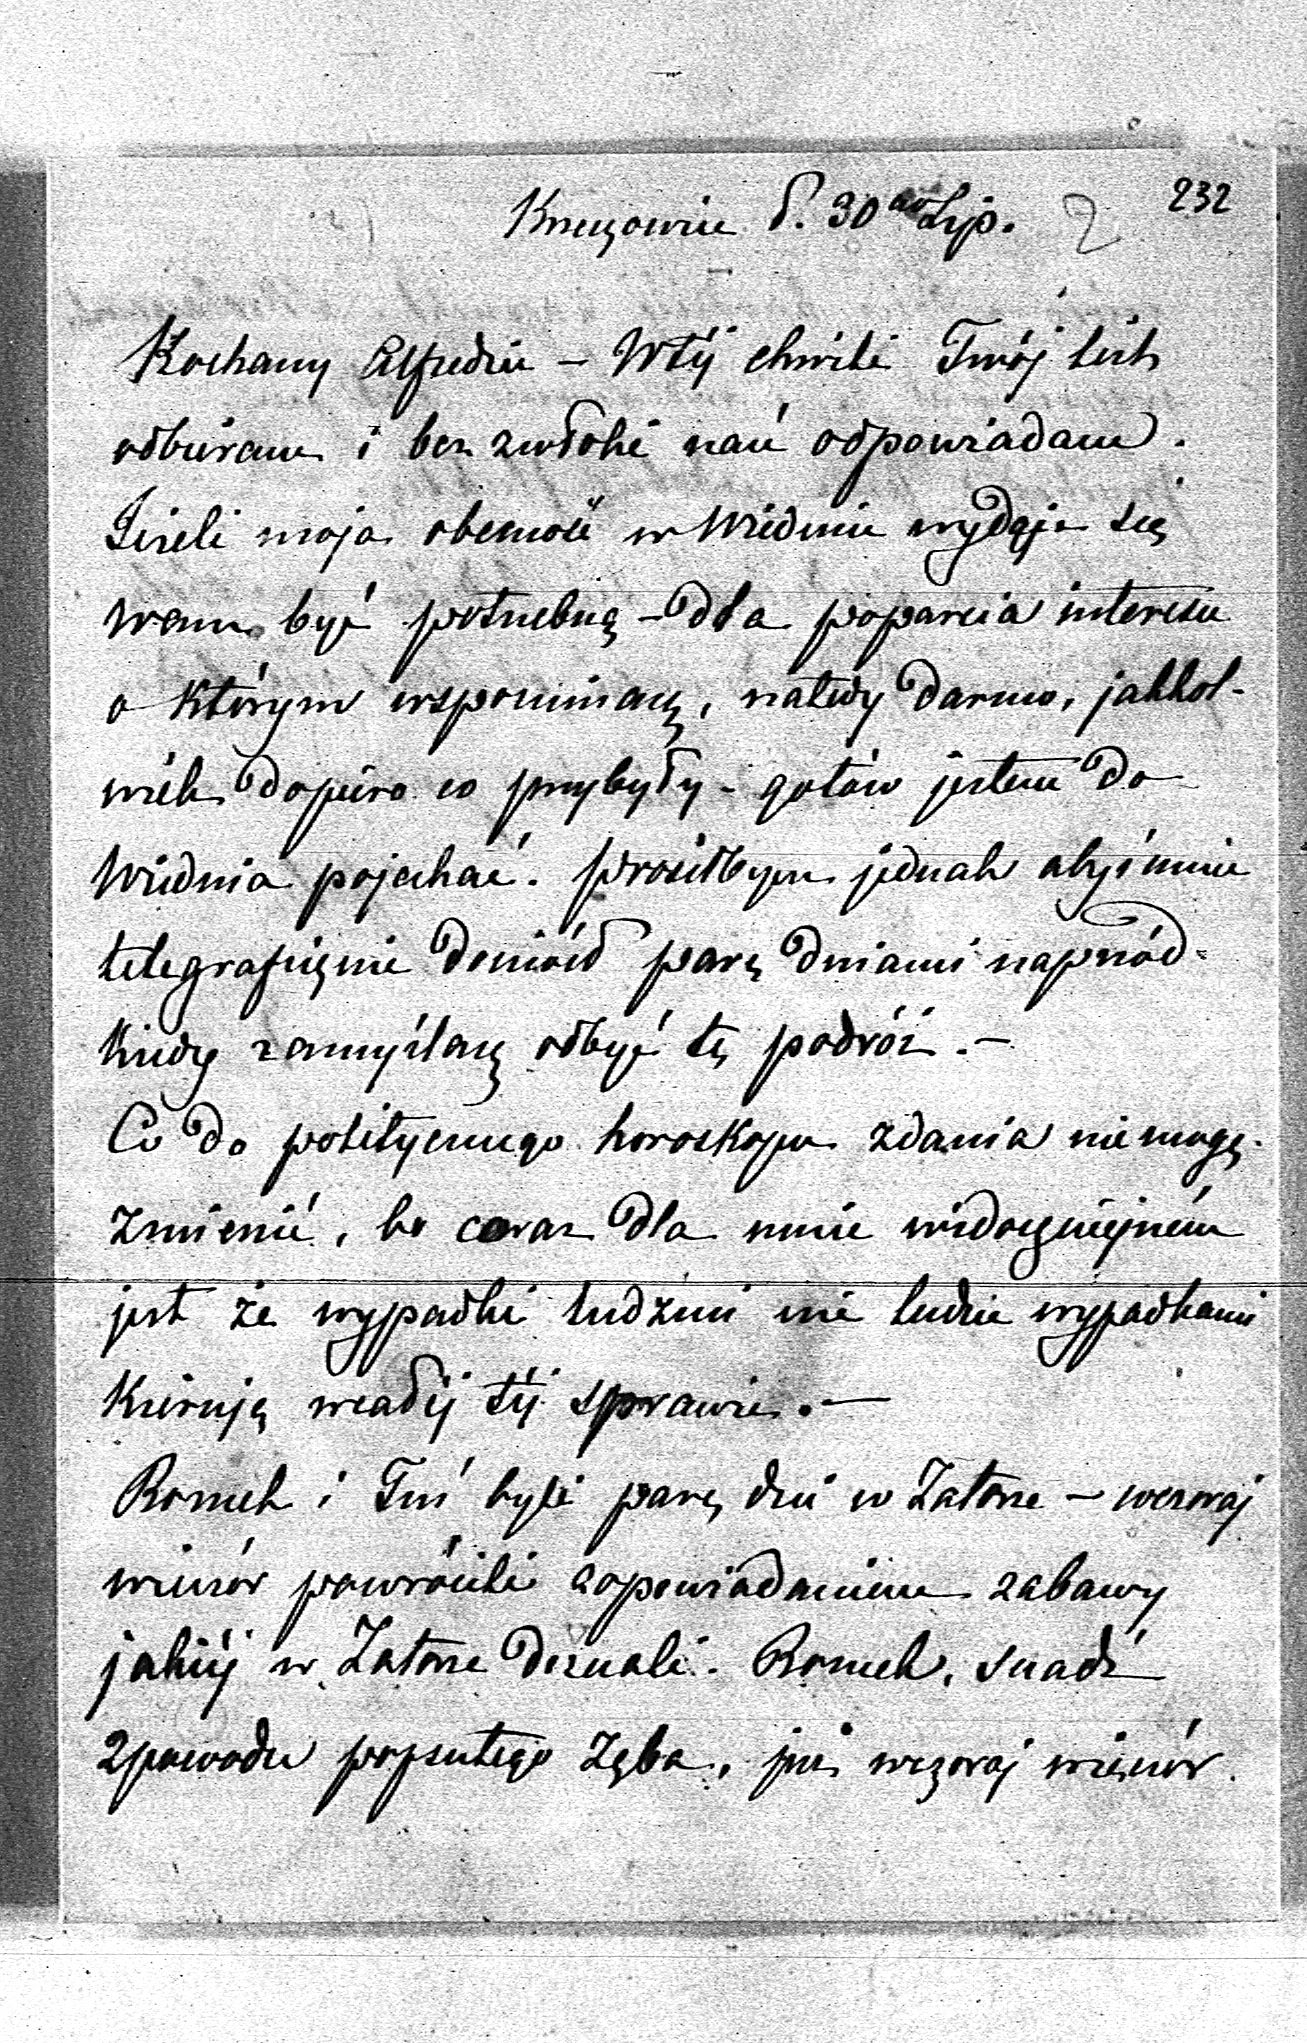 232
Krzeszowice d. 30go Lip. 2
Kochany Alfredzie – W téj chwili Twój list
odbieram i bez zwłoki nań odpowiadam.
Jeżeli moja obecność w Wiedniu wydaje się
wam być potrzebną – dla poparcia interesu
o którym wspominasz, natedy darmo, jakkol-
wiek dopiero co przybyły – gotów jestem do
Wiednia pojechać. Prosiłbym jednak abyś mnie
telegraficznie doniósł parę dniami naprzód
kiedy zamyślasz odbyć tę podróż. –
Co do politycznego horoskopu zdania nie mogę
zmienić, bo coraz dla mnie widoczniejszém
jest że wypadki ludźmi nie ludzie wypadkami
kierują w całéj téj sprawie. –
Romek i Tuś byli parę dni w Zatorze – wczoraj
wieczór powrócili z opowiadaniem zabawy
jakiéj w Zatorze doznali. Romek, snadź
z powodu popsutego zęba, już wczoraj wieczór